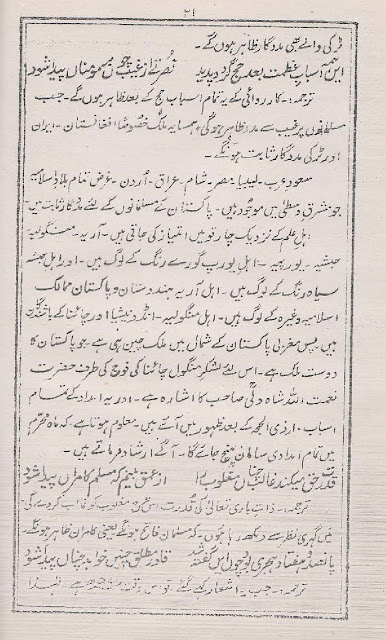 ۲۱
ٹرکی والے بھی مددگار ظاہر ہوں گے۔
این ہمہ اسباب عظمت بعد حج گردد پدید نصرتے از غیب چوں بر مومناں پیدا شود
ترجمہ:۔ کارروائی کے یہ تمام اسباب حج کے بعد ظاہر ہوں گے۔ جب
مسلمانوں پر غیب سے مدد ظاہر ہوگی، ہمسایہ ملک خصوصاً افغانستان۔ ایران
اور ٹرکی مددگار ثابت ہونگے۔
سعودی عرب۔ لیبیا۔ مصر۔ شام۔ عراق۔ اُردن۔ غرض تمام بلادِ اسلامیہ
جو مشرق وسطیٰ میں موجود ہیں۔ پاکستان کے مسلمانوں کے لئے مددگار ثابت ہیں۔
اہل علم کے نزدیک چار قومیں امتیاز کی جاتی ہیں۔ آریہ۔ منگولیہ
حبشیہ۔ یورپیہ۔ اہل یورپ گورے رنگ کے لوگ ہیں۔ اور اہل حبشہ
سیاہ رنگ کے لوگ ہیں۔ اہل آریہ ہندوستان و پاکستان ممالک
اسلامیہ وغیرہ کے لوگ ہیں۔ اہل منگولیہ۔ انڈونیشیا اور چائنا کے باشندگان
ہیں پس مغربی پاکستان کے شمال میں ملک چین ہی ہے جو پاکستان کا
دوست ملک ہے۔ اس لئے لشکر منگول چائنا کی فوج کی طرف حضرت
نعمت اللہ شاہ ولی صاحب کا اشارہ ہے۔ اور یہ امداد کے تمام
اسباب ذی الحجہ کے بعد ظہور میں آتے ہیں۔ معلوم ہوتا ہے کہ ماہ محرم
میں تمام امدادی سامان پہنچ جائے گا۔ آگے ارشاد فرماتے ہیں۔
قدرت حق میکند غالب چناں مغلوب را از عمق بینم کہ مسلم کامراں پیدا شود
ترجمہ:۔ ذات باری تعالیٰ کی قدرت اس طرح مغلوب کو غالب کر دے گی۔
میں گہری نظر سے دیکھ رہا ہوں۔ کہ مسلمان فاتح ہونگے یعنی کامران ظاہر ہونگے۔
پانصد و ہفتاد ہجری بود چوں ایں گفتہ شد قادر مطلق چنیں خواہد چناں پیدا شود
ترجمہ:۔ جب یہ اشعار کہے گئے تو اس وقت ہے۔ لہٰذا